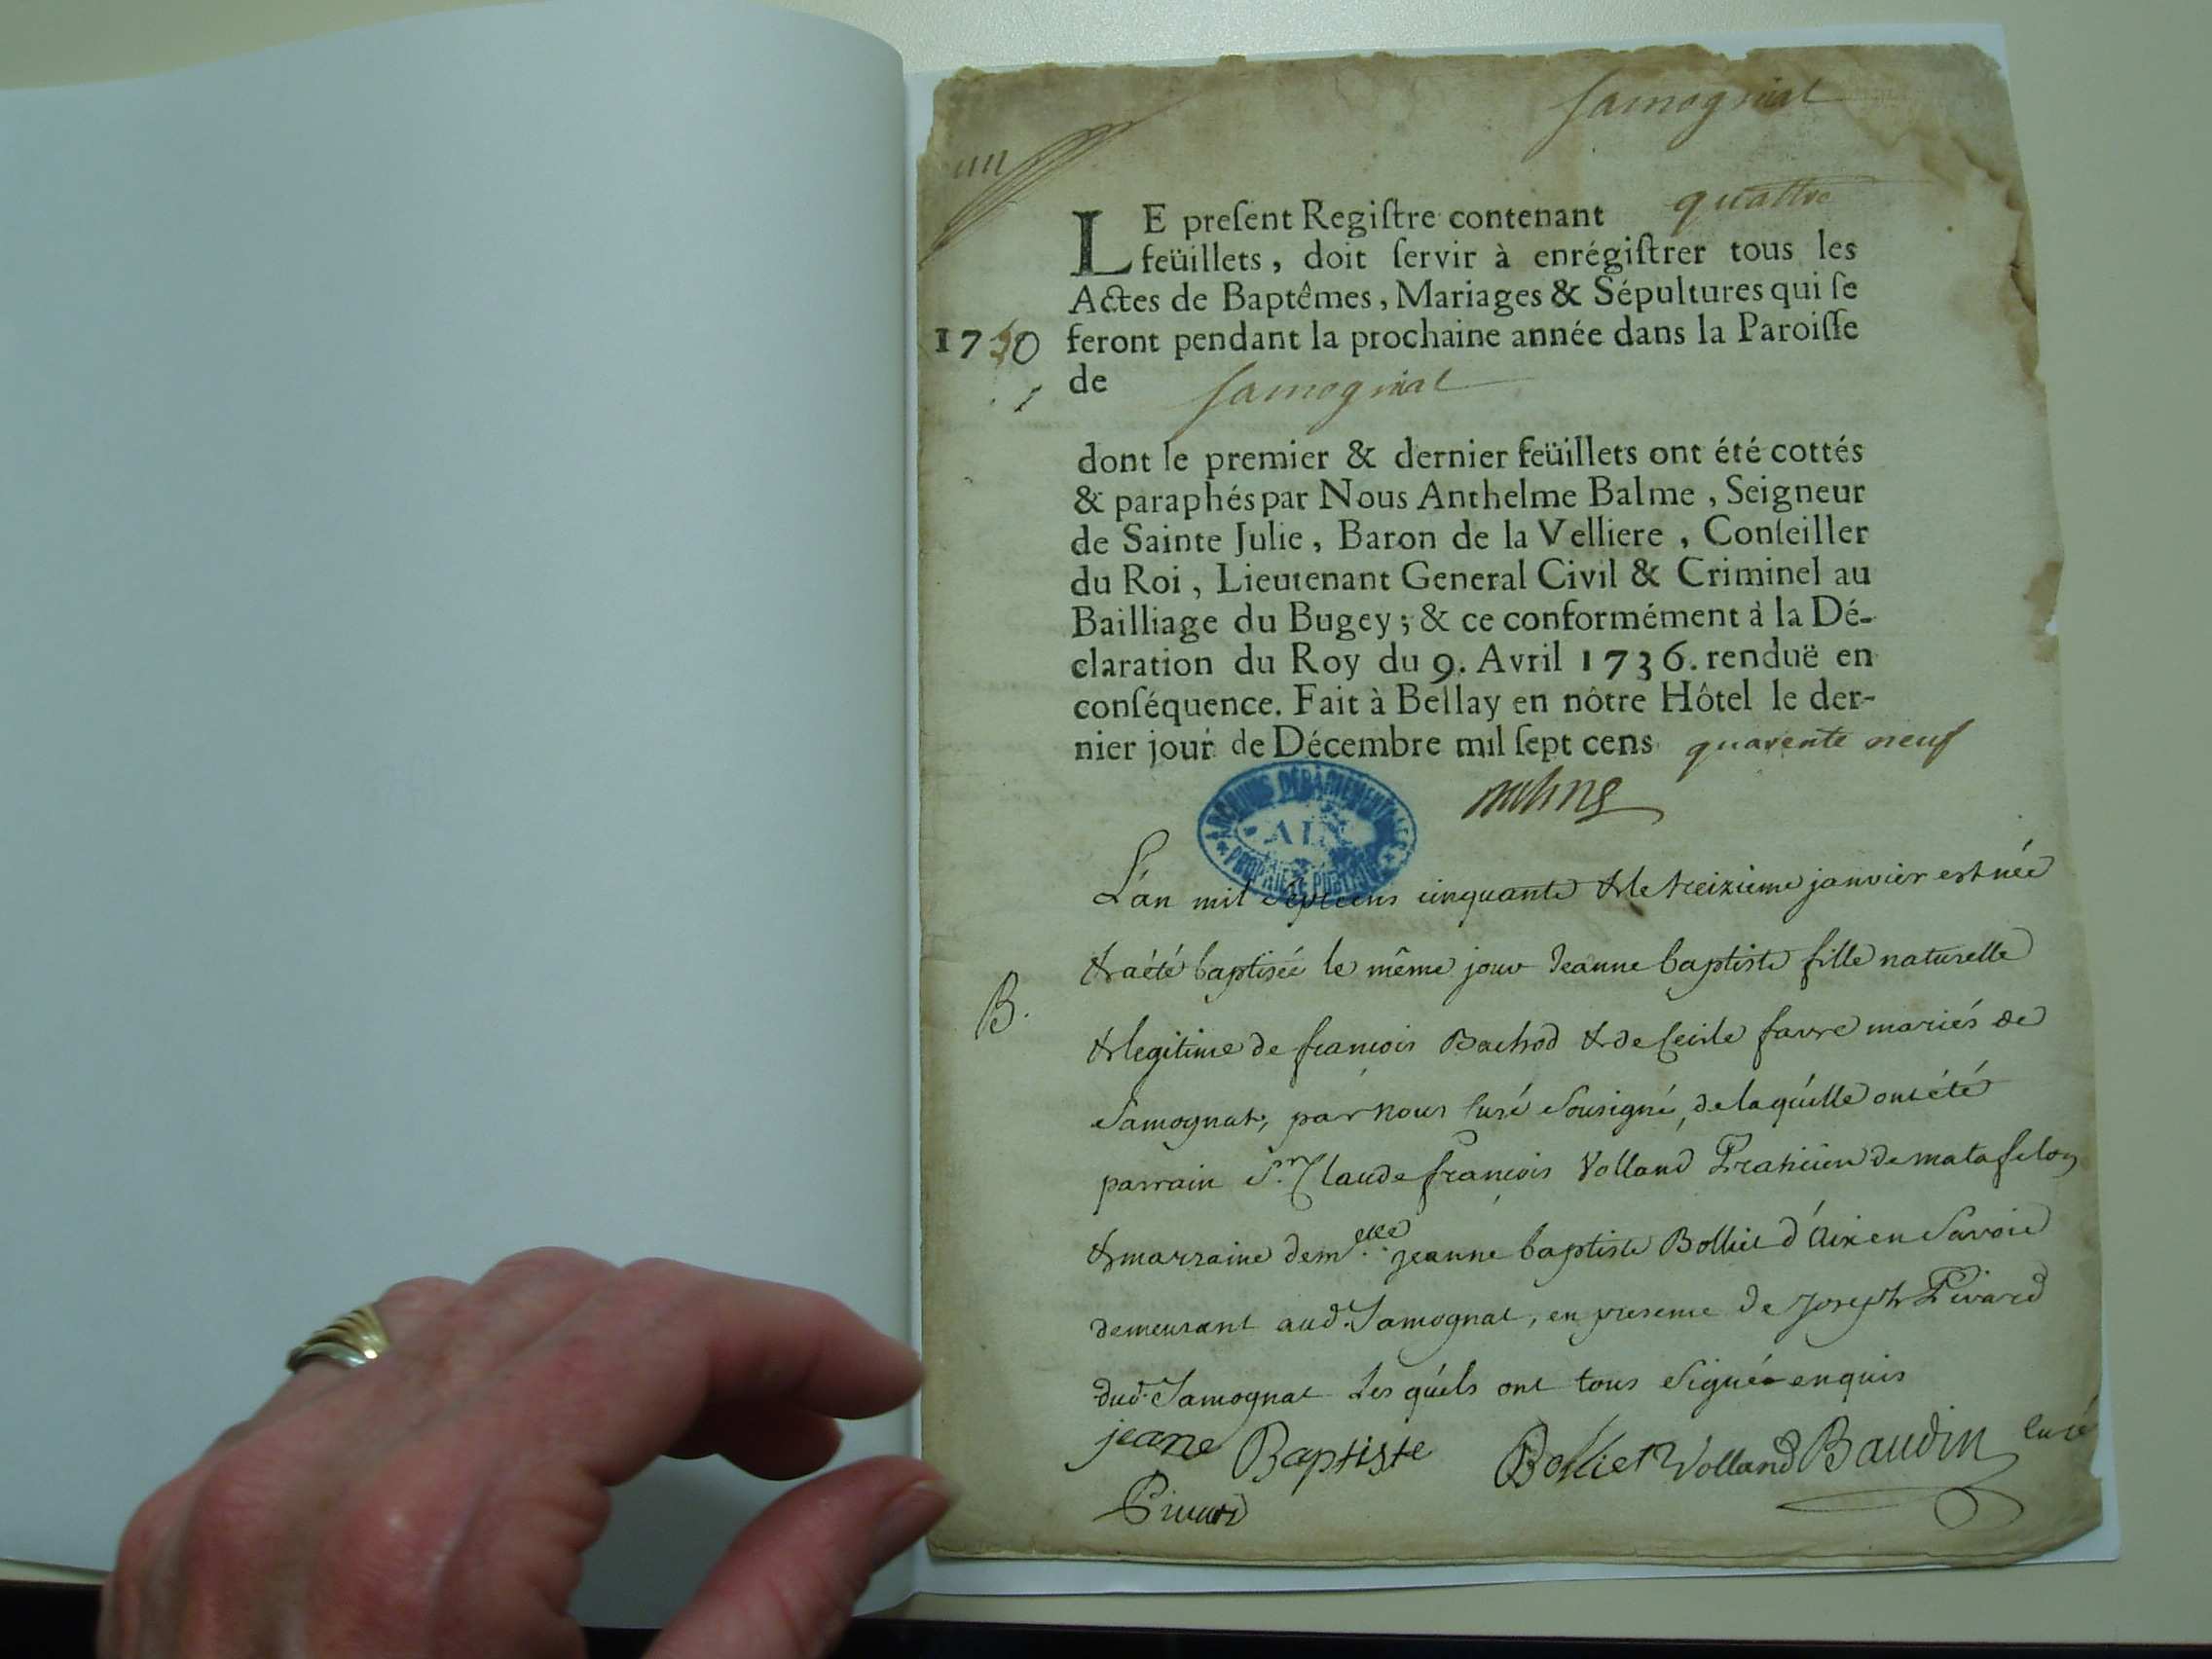 Samognat
un
LE preſent Regiſtre contenant quattre
feüillets, doit ſervir à enrégiſtrer tous les
Actes de Baptêmes, Mariages & Sépultures qui ſe
1750 feront pendant la prochaine année dans la Paroiſſe
1 de Samognat
dont le premier & dernier feüillets ont été cottés
& paraphés par Nous Anthelme Balme, Seigneur
de Sainte Julie, Baron de la Velliere, Conſeiller
du Roi, Lieutenant General Civil & Criminel au
Bailliage du Bugey; & ce conformément à la Dé-
claration du Roy du 9. Avril 1736. renduë en
conſéquence. Fait à Bellay en nôtre Hôtel le der-
nier jour de Décembre mil ſept cens quarente neuf
ARCHIVES DÉPARTEMENTALES
AIN
PROPRIÉTÉ PUBLIQUE
L'an mil septcens cinquante & le treizieme janvier est née
& a été baptisée le même jour Jeanne baptiste fille naturelle
B. & legitime de francois Bachod & de Cecile favre mariés de
Samognat, par nous Curé Sousigné, de laquélle ont été
parrain Sr. Claude francois Volland Praticien de matafelon
& marraine demlle. jeanne baptiste Bolliet d'Aix en Savoie
demeurant aud. Samognat, en presence de Joseph Pivard
dud. Samognat Les quéls ont tous Signé enquis
jeane Baptiste Bolliet Volland Baudin Curé
Pivard